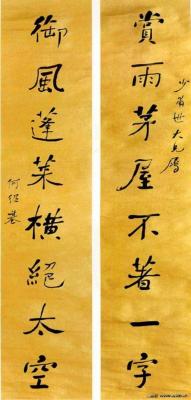 賞雨茅屋不著一字
少眉世大兄屬
御風蓬萊橫絕太空
何紹基